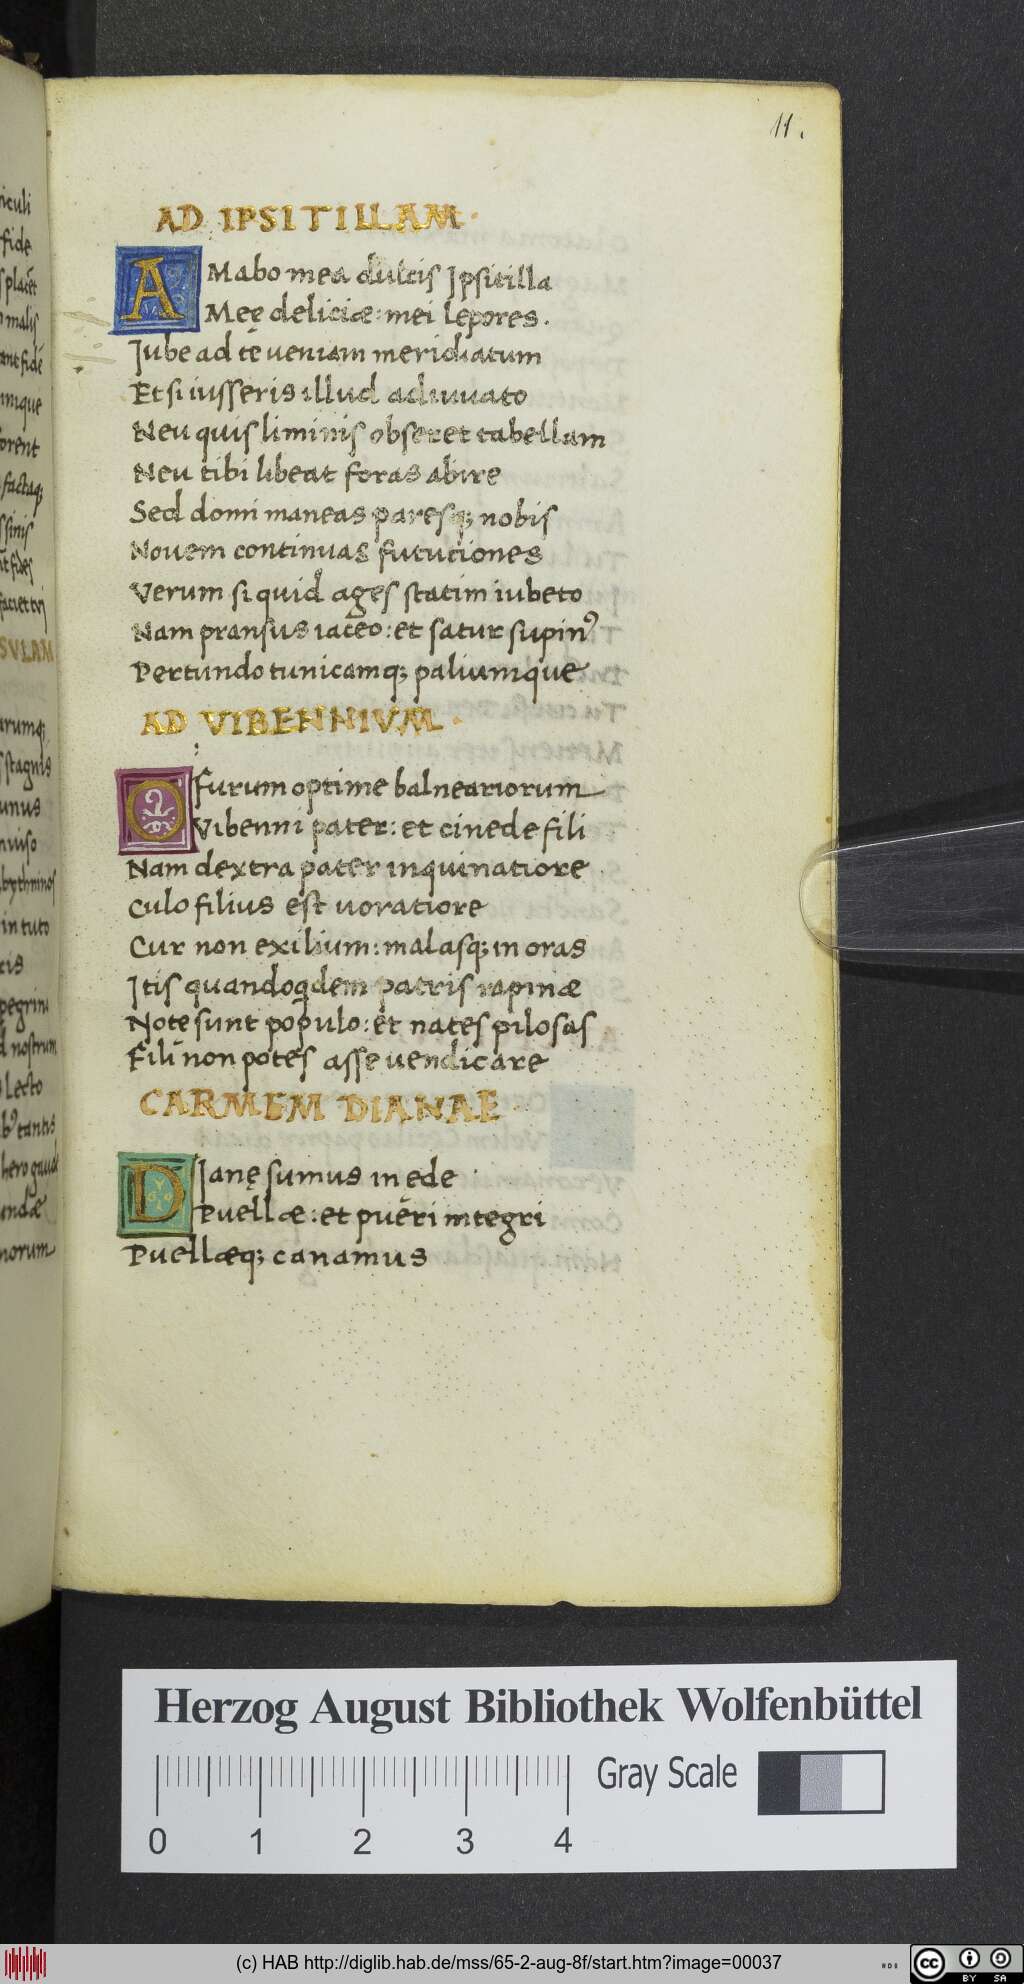 11.
AD IPSITILLAM ·
AMabo mea dulcis Jpsitilla
Meę deliciæ: mei lepores.
Jube ad te veniam meridiatum
Et si iusseris illud adiuvato
Neu quis liminis obseret tabellam
Neu tibi libeat foras abire
Sed domi maneas paresq; nobis
Novem continuas fututiones
Verum si quid ages statim iubeto
Nam pransus iaceo: et satur supinꝰ
Pertundo tunicamq; paliumque
AD VIBENNIVM ·
O furum optime balneariorum
Vibenni pater: et cinede fili
Nam dextra pater inquinatiore
Culo filius est voratiore
Cur non exilium: malasq; in oras
Jtis quandoqdem patris rapinæ
Note sunt populo: et nates pilosas
Fili non potes asse vendicare
CARMEM DIANAE ·
DJanę sumus in ede
Puellæ: et pueri integri
Puellæq; canamus
iculi
fide
malis
ant fidē
orent
SVLAM
arumq;
stagnis
unus
in tuto
nostrum
Lecto
tantis
norum
Herzog August Bibliothek Wolfenbüttel
Gray Scale
0 1 2 3 4
(c) HAB http://diglib.hab.de/mss/65-2-aug-8f/start.htm?image=00037
HDB
cc BY SA